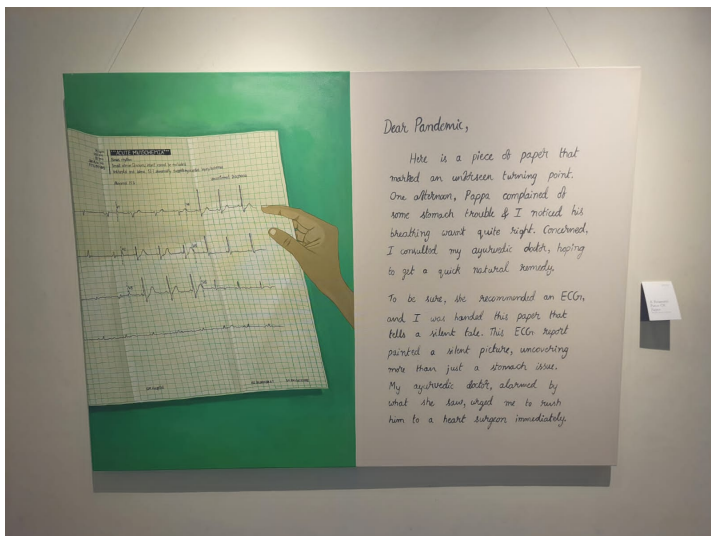 **ACUTE MI/ISCHEMIA**
Dear Pandemic,
Here is a piece of paper that
marked an unforseen turning point.
One afternoon, Pappa complained of
some stomach trouble & I noticed his
breathing wasnt quite right. Concerned,
I consulted my ayurvedic doctor, hoping
to get a quick natural remedy.
To be sure, she recommended an ECG,
and I was handed this paper that
tells a silent tale. This ECG report
painted a silent picture, uncovering
more than just a stomach issue.
My ayurvedic doctor, alarmed by
what she saw, urged me to rush
him to a heart surgeon immediately.